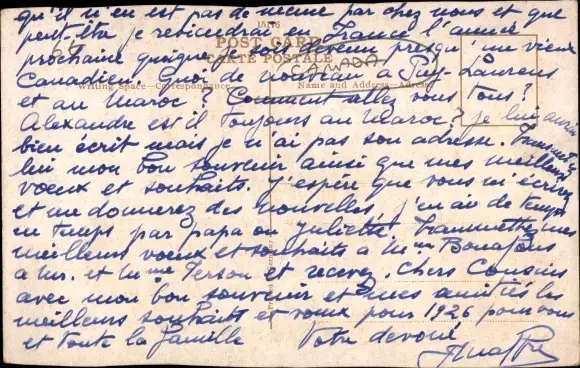 qu'il n'en est pas de même par chez nous et que
peut-être je reviendrai en France l'année
15116
POST CARD
prochaine quoique je sois devenu presqu'un vieux
CARTE POSTALE
CANADA
Canadien. Quoi de nouveau à Puy-Laurens
Writing Space—Correspondance Name and Address—Adresse
et au Maroc ? Comment allez vous tous ?
Alexandre est-il toujours au Maroc ? je lui aurais
bien écrit mais je n'ai pas son adresse. Transmettez
lui mon bon souvenir ainsi que mes meilleurs
vœux et souhaits. J'espère que vous m'écrirez
et me donnerez des nouvelles, j'en ai de temps
en temps par papa ou Juliette. Transmettez mes
meilleurs voeux et souhaits à Mme
à Mr. et Mme Person et recevez, Chers Cousins
avec mon bon souvenir et mes amitiés les
meilleurs souhaits et vœux pour 1926 pour vous
et toute la famille Votre dévoué